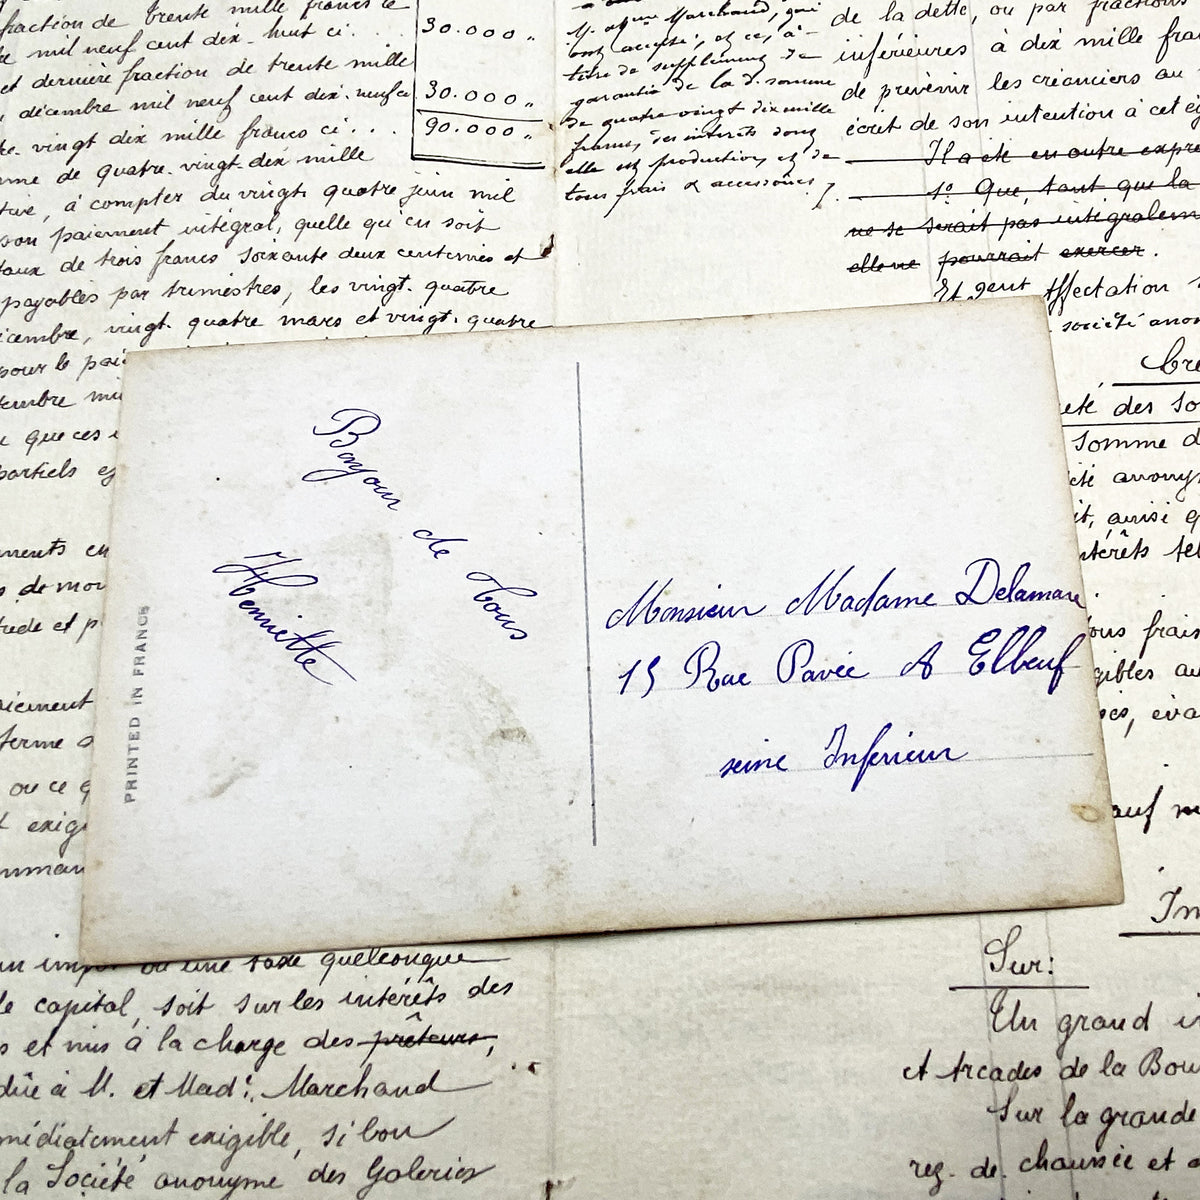 fraction de trente mille francs le
mil neuf cent dix-huit ci. . . .
30.000 "
et dernière fraction de trente mille
décembre mil neuf cent dix-neuf ci
30.000 "
vingt dix mille francs ci. . .
90.000 "
me de quatre-vingt-dix mille
à compter du vingt-quatre juin mil
son paiement intégral, quelle qu'en soit
taux de trois francs soixante deux centimes et
payables par trimestres, les vingt-quatre
décembre, vingt-quatre mars et vingt-quatre
pour le pai
tembre mi
que ces
partiels
ments en
de mor
et p
aiement
ferme
ou ce q
exig
un imp ou une taxe quelconque
le capital, soit sur les intérêts des
s et mis à la charge des prêteurs,
dûe à M. et Made. Marchand
médiatement exigible, si bon
la Société anonyme des Galeries
Marchand, qui
ont accepté; et ce, à
titre de supplément de
garantie de la d. somme
de quatre-vingt dix mille
francs, des intérêts dont
elle est productive, et de
tous frais & accessoires
de la dette, ou par fractions
inférieures à dix mille fra
de prévenir les créanciers au
écrit de son intention à cet ég
Il a été en outre expre
1° Que, tant que la
ne se serait pas intégralem
elle ne pourrait exercer.
Et gent affectation
société anon
Cre
été des So
Somme d
été anony
it, ainsi q
intérêts tel
ous frais
gibles au
Sur:
Un grand i
et Arcades de la Bou
Sur la grande
rez-de-chaussée et
PRINTED IN FRANCE
Bonjour de tous
Henriette
Monsieur Madame Delamare
15 Rue Pavée A Elbeuf
seine Inferieur